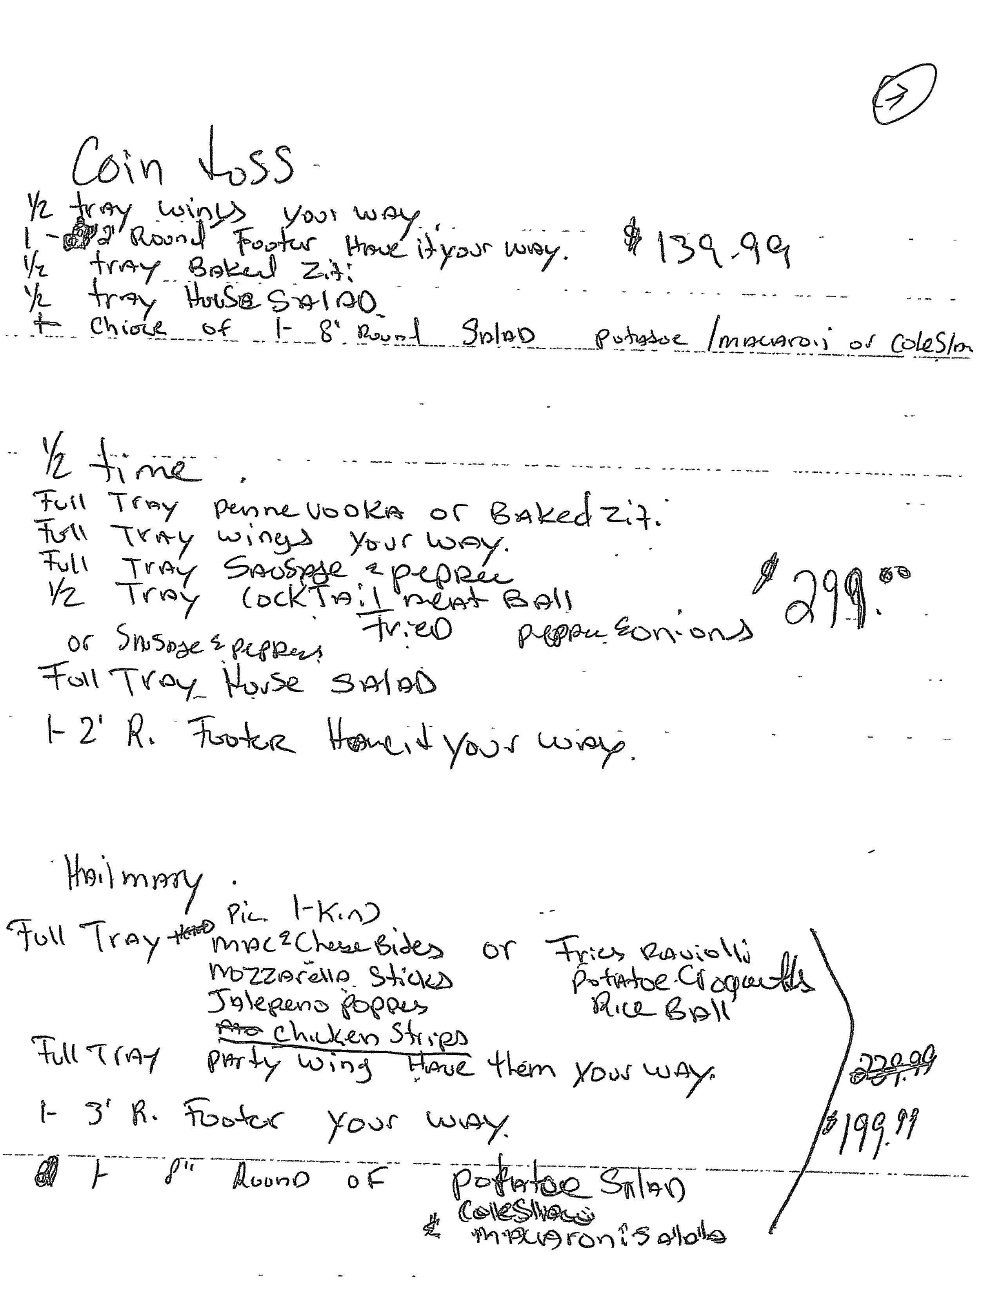 Coin toss
1/2 tray wings your way.
1 - 2' Round Footer Have it your way. $139.99
1/2 tray Baked Ziti
1/2 tray House SALAD
+ Chioce of 1- 8" Round SALAD potatoe / macaroni or Coleslaw
1/2 time
Full Tray penne vodka or Baked Ziti
Full Tray wings your way.
Full Tray Sausage & pepper
1/2 Tray Cocktail meat Ball $299.00
Fried pepper & onions
or Sausage & peppers
Full Tray House SALAD
1- 2' R. Footer Have it your way.
Hailmary
Pic 1-Kind
Full Tray Mac & Chese Bides or Fries Raviolli
Mozzarella Sticks Potatoe Croquetts
Jalepeno Poppers Rice Ball
Chicken Strips
Full Tray Party wing Have them your way.
239.99
1- 3' R. Footer your way. $199.99
1- 8" Round of potatoe Salad
Coleslaw
& macaroni Salad